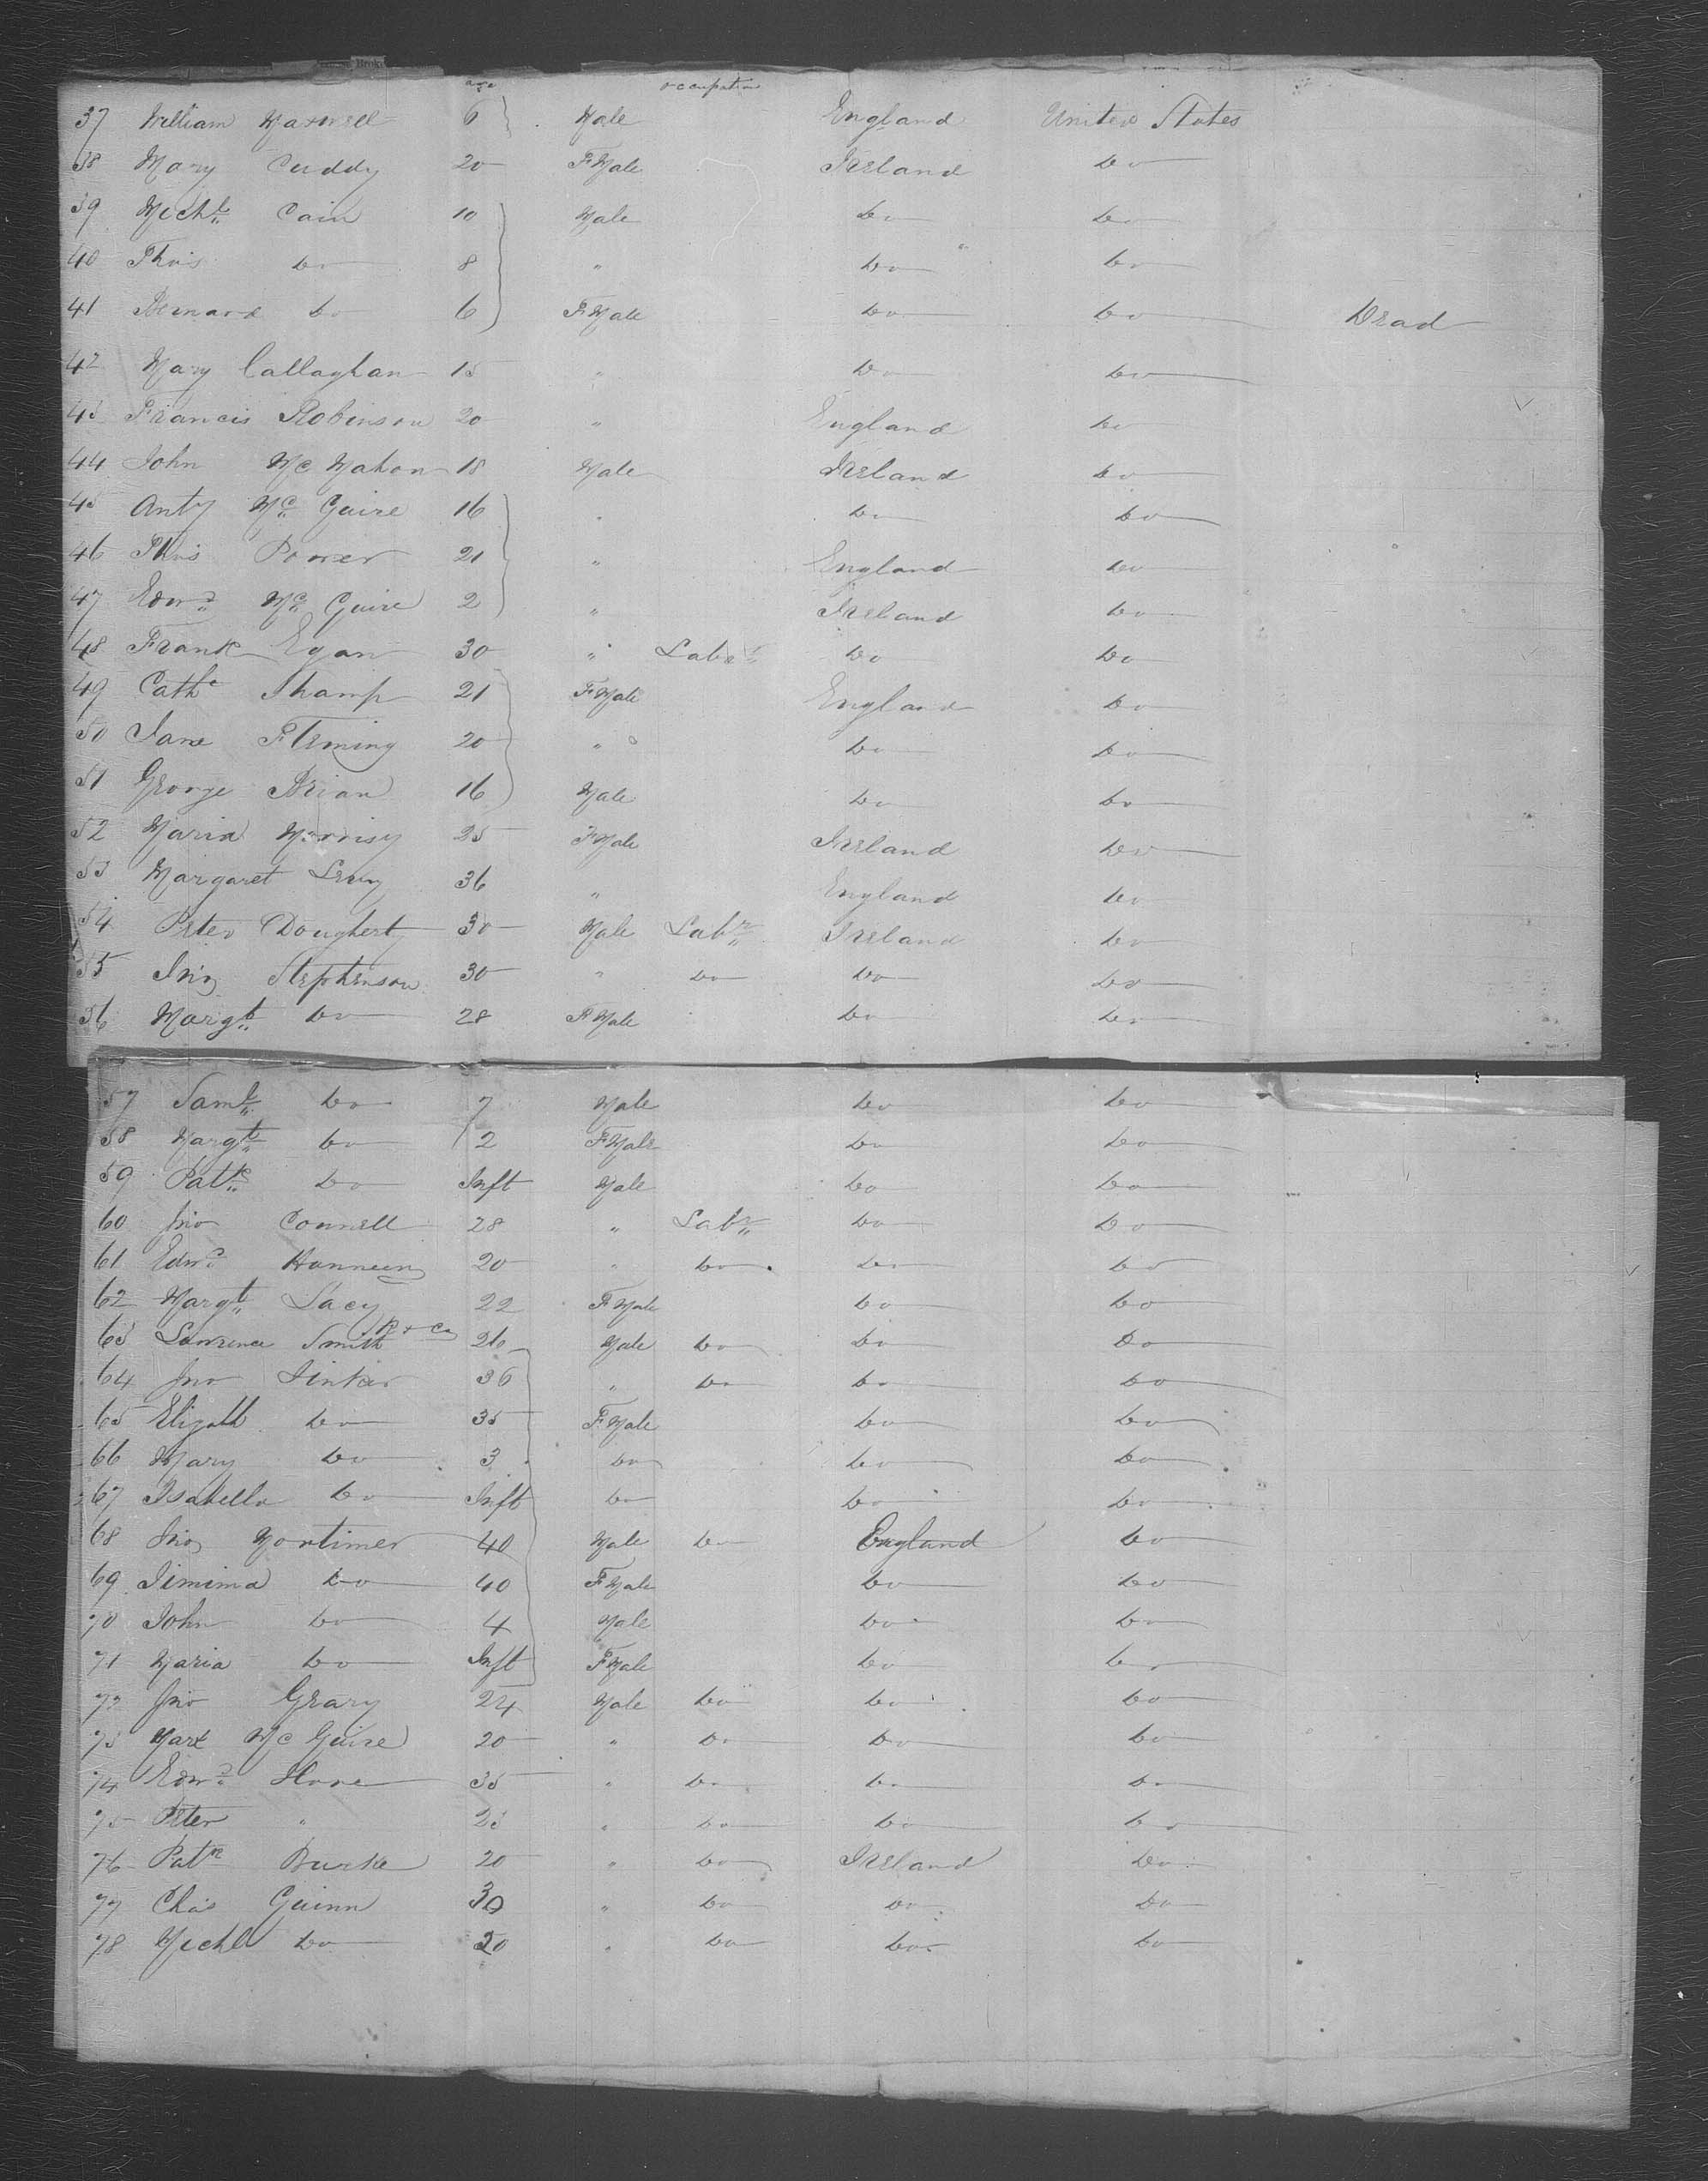 age occupation
37 William Maxwell 6 Male England United States
38 Mary Cuddy 20 FMale Ireland Do
39 Michl Cain 10 Male Do Do
40 Thos Do 8 " Do Do
41 Bernard Do 6 FMale Do Do Dead
42 Mary Callaghan 15 " Do Do
43 Francis Robinson 20 " England Do
44 John McMahon 18 Male Ireland Do
45 Anty McGuire 16 " Do Do
46 Thos Power 21 " England Do
47 Edwd McGuire 2 " Ireland Do
48 Frank Egan 30 " Labr Do Do
49 Cathe Sharp 21 FMale England Do
50 Jane Fleming 20 " Do Do
51 George Brian 16 Male Do Do
52 Maria Morrisy 25 FMale Ireland Do
53 Margaret 36 " England Do
54 Peter Dougherty 30 Male Labr Ireland Do
55 Jno Stephenson 30 " Do Do Do
56 Margt Do 28 FMale Do Do
57 Saml Do 7 Male Do Do
58 Margt Do 2 FMale Do Do
59 Patk Do Inft Male Do Do
60 Jno Connell 28 " Labr Do Do
61 Edwd 20 " Do Do Do
62 Margt Lacy 22 FMale Do Do
63 Lawrence Smith 26 Male Do Do Do
64 Jno 36 " Do Do Do
65 Elizath Do 35 FMale Do Do
66 Mary Do 3 Do Do Do
67 Isabella Do Inft Do Do Do
68 Jno Mortimer 40 Male Do England Do
69 Jimima Do 40 FMale Do Do
70 John Do 4 Male Do Do
71 Maria Do Inft FMale Do Do
72 Jno Geary 24 Male Do Do Do
73 Mark McGuire 20 " Do Do Do
74 Edwd 35 " Do Do Do
75 Peter " " Do Do Do
76 Patk Burke 20 " Do Ireland Do
77 Chas Guinn 30 " Do Do Do
78 Michl Do 20 " Do Do Do